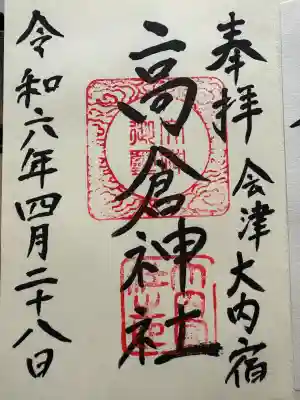 奉拝
会津大内宿
高倉神社
令和六年四月二十八日